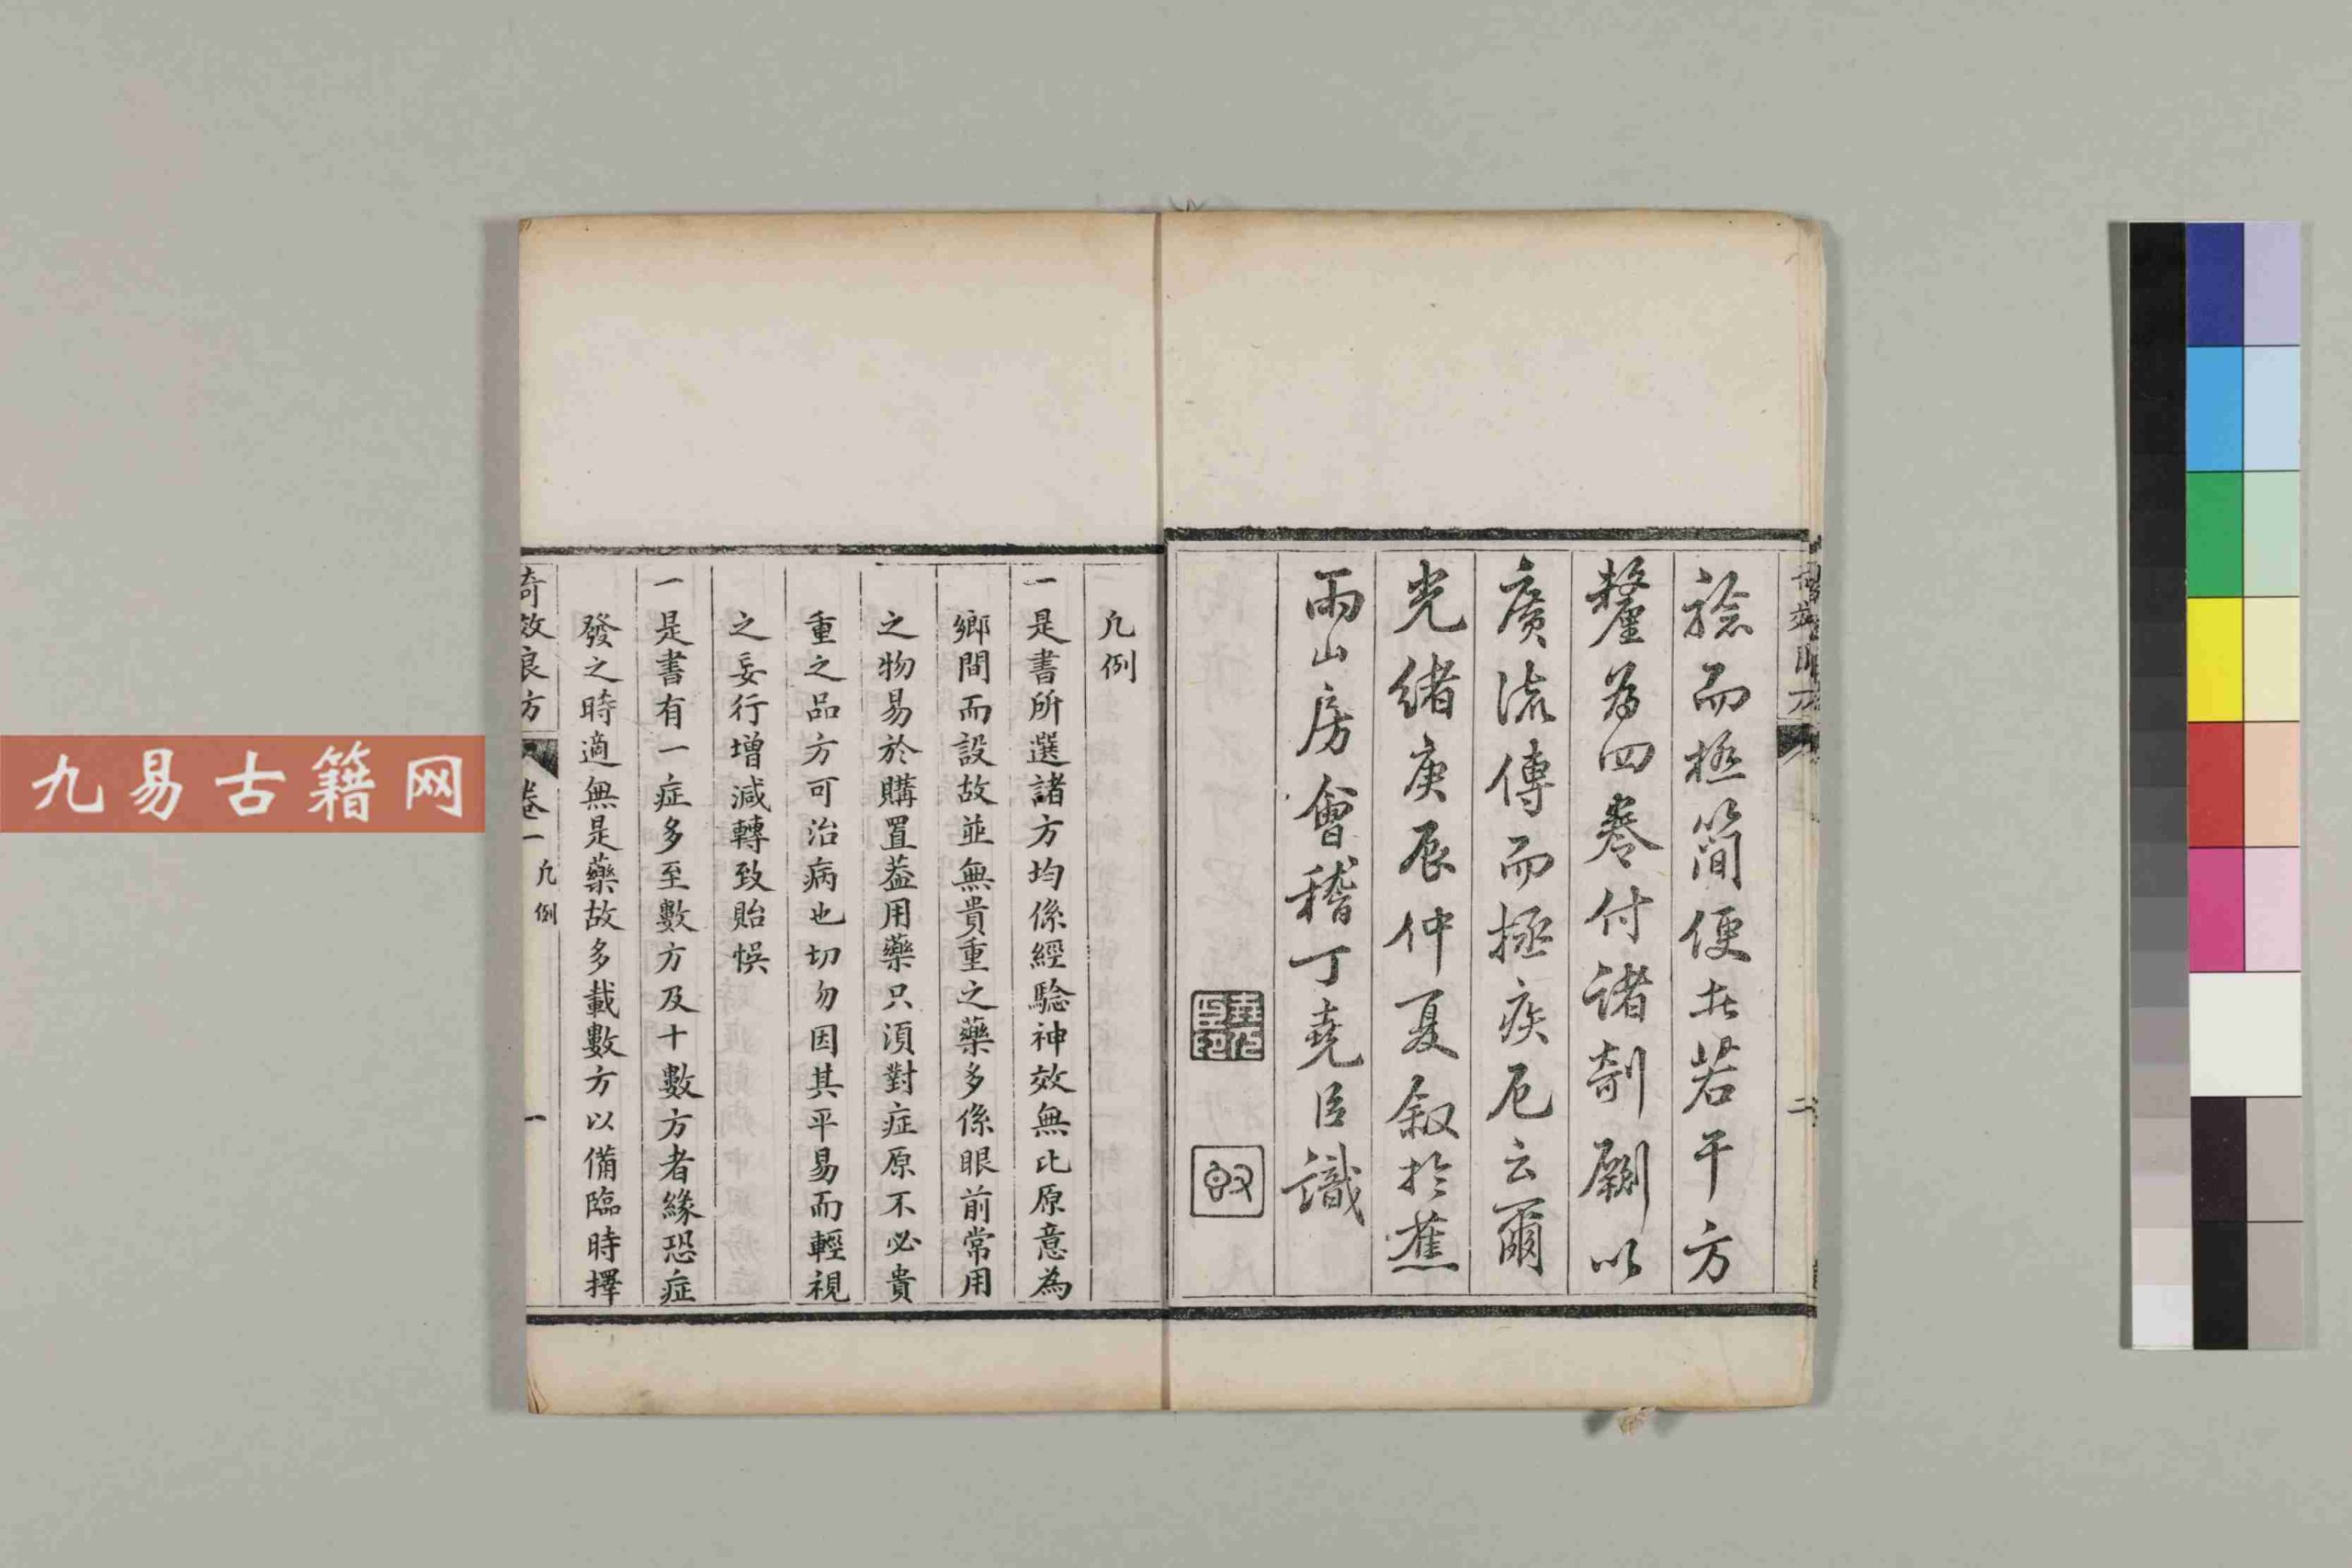 驗而極簡便者若干方
釐為四卷付諸剞劂以
廣流傳而拯疾厄云爾
光緒庚辰仲夏叙於蕉
雨山房會稽丁堯臣識
二
凡例
一是書所選諸方均係經驗神效無比原意為
鄉間而設故並無貴重之藥多係眼前常用
之物易於購置葢用藥只須對症原不必貴
重之品方可治病也切勿因其平易而輕視
之妄行增減轉致貽悞
一是書有一症多至數方及十數方者緣恐症
發之時適無是藥故多載數方以備臨時擇
奇效良方 卷一 凡例 一
九易古籍网